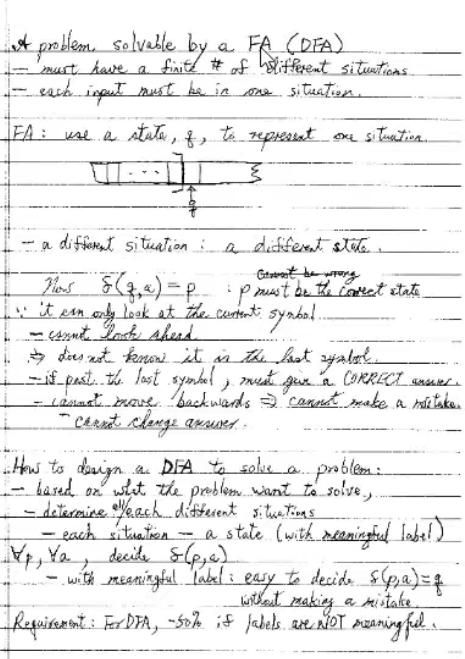 A problem solvable by a FA (DFA)
- must have a finite # of different situations
- each input must be in one situation.
FA: use a state, q, to represent one situation.
...
q
- a different situation : a different state.
cannot be wrong
Now δ(q,a) = p : p must be the correct state
∵ it can only look at the current symbol
- cannot look ahead
⇒ does not know it is the last symbol.
- if past the last symbol, must give a CORRECT answer.
- cannot move backwards ⇒ cannot make a mistake.
- cannot change answer.
How to design a DFA to solve a problem:
- based on what the problem want to solve,
- determine all/each different situations
- each situation - a state (with meaningful label)
∀p, ∀a, decide δ(p,a)
- with meaningful label: easy to decide δ(p,a) = q
without making a mistake
Requirement: For DFA, -50% if labels are NOT meaningful.